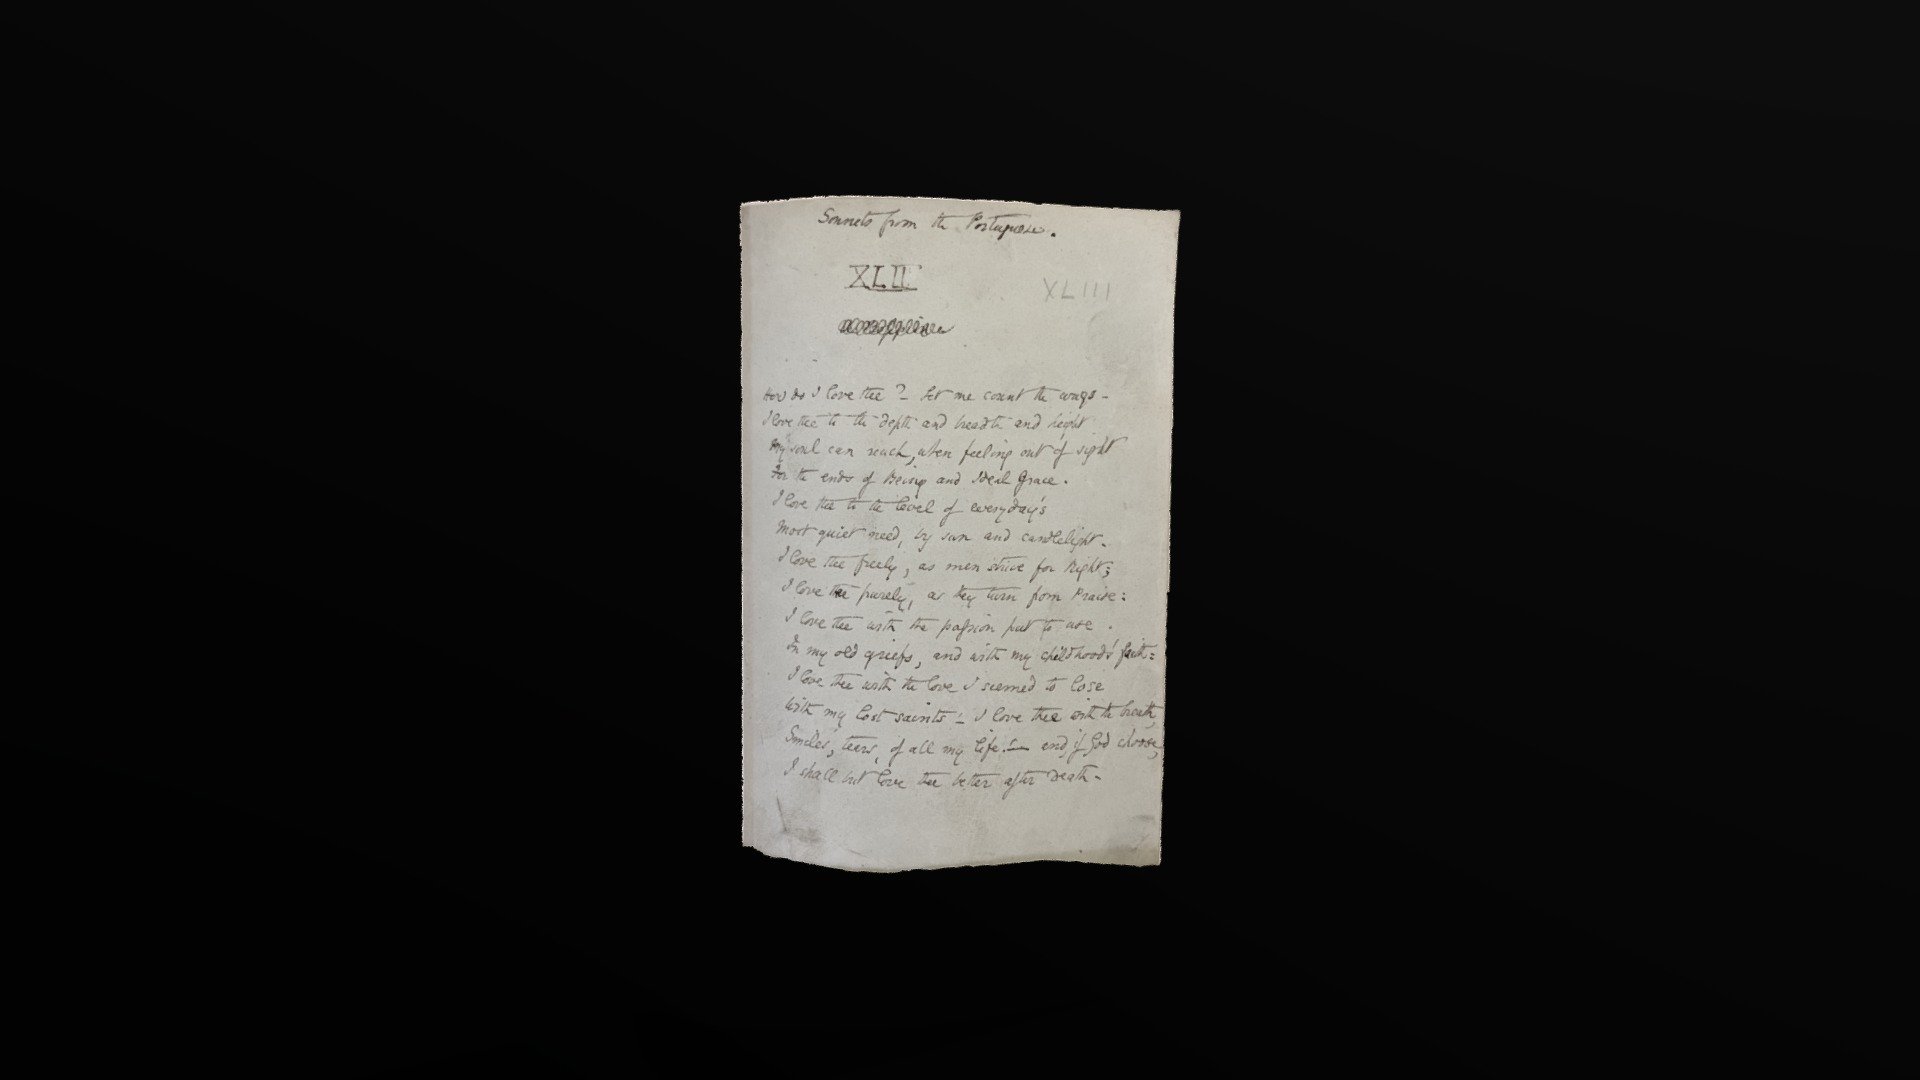 Sonnets from the Portuguese.
XLII
XLIII
How do I love thee? — Let me count the ways —
I love thee to the depth and breadth and height
My soul can reach, when feeling out of sight
For the ends of Being and Ideal Grace.
I love thee to the level of everyday's
Most quiet need, by sun and candlelight —
I love thee freely, as men strive for Right;
I love thee purely, as they turn from Praise:
I love thee with the passion put to use
In my old griefs, and with my childhood's faith:
I love thee with the love I seemed to lose
With my lost saints! — I love thee with the breath,
Smiles, tears, of all my life! — and, if God choose,
I shall but love thee better after Death —